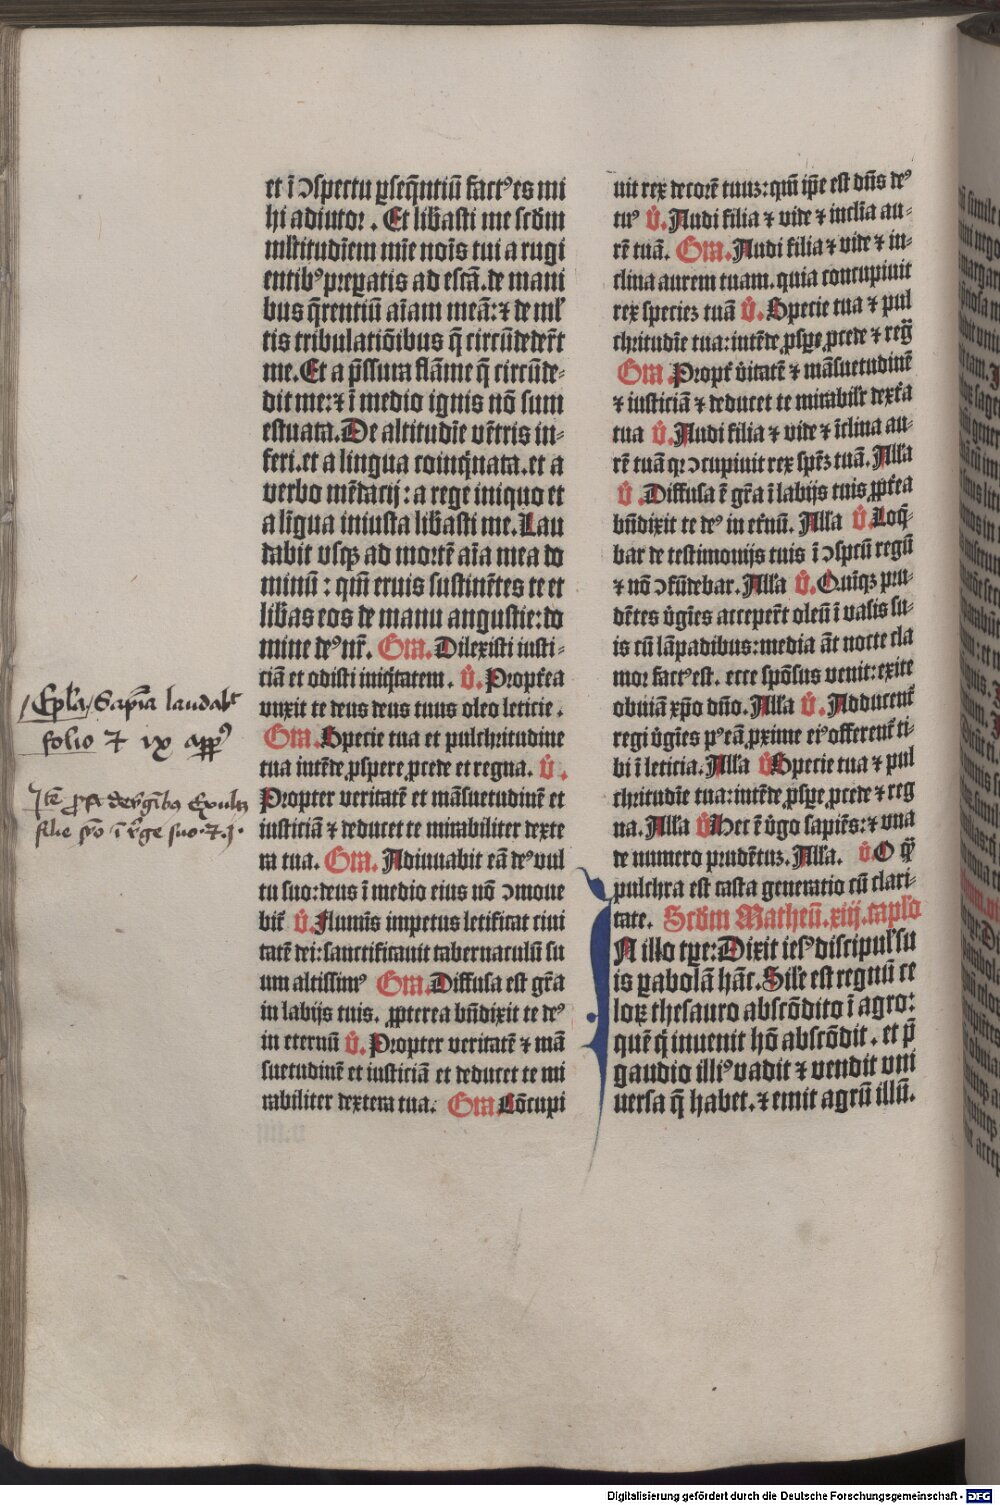 et ī ꝯspectu ꝑseq̄ntiū factꝰ es mi
hi adiutor. Et lib̄asti me scd̄m
ml̄titudīem mīe noīs tui a rugi
entibꝰ preꝑatis ad escā. de mani
bus q̄rentiū aīam meā: ⁊ de ml̓
tis tribulatiōibus q̄ circūdeder̄t
me. Et a p̄ssura flāme q̄ circūde⸗
dit me: ⁊ ī medio ignis nō sum
estuata. De altitudīe vētris in⸗
feri. et a lingua coinq̄nata. et a
verbo mēdacij: a rege iniquo et
a līgua iniusta lib̄asti me. Lau
dabit vsqꝫ ad mortē aīa mea do
minū: qm̄ eruis sustinētes te et
lib̄as eos de manu angustie: do
mine deꝰ nr̄. Gra. Dilexisti iusti⸗
ciā et odisti iniq̄tatem. v̄. Propt̄ea
vnxit te deus deus tuus oleo leticie.
Gra. Specie tua et pulchritudine
tua intēde ꝓspere ꝓcede et regna. v̄.
Propter veritatē et māsuetudinē et
iusticiā ⁊ deducet te mirabiliter dexte
ra tua. Gra. Adiuuabit eā deꝰ vul
tu suo: deus ī medio eius nō ꝯmoue
bit̄ v̄. Flumīs impetus letificat ciui
tatē dei: sanctificauit tabernaculū su
um altissimꝰ Gra. Diffusa est gr̄a
in labijs tuis. ꝓpterea bn̄dixit te deꝰ
in eternū v̄. Propter veritatē ⁊ mā
suetudinē et iusticiā et deducet te mi
rabiliter dextera tua. Gra. Cōcupi
uit rex decorē tuuꝫ: qm̄ ip̄e est dn̄s deꝰ
tuꝰ v̄. Audi filia ⁊ vide ⁊ inclīa au⸗
rē tuā. Gra. Audi filia ⁊ vide ⁊ in⸗
clina aurem tuam. quia concupiuit
rex specieꝫ tuā v̄. Specie tua ⁊ pul
chritudīe tua: intēde ꝓsꝑe ꝓcede ⁊ reḡ
Gra. Propt̄ v̄itatē ⁊ māsuetudinē
⁊ iusticiā ⁊ deducet te mirabilr̄ dext̄a
tua v̄. Audi filia ⁊ vide ⁊ īclina au⸗
rē tuā qꝛ ꝯcupiuit rex spēꝫ tuā. Alla
v̄. Diffusa ē gr̄a ī labijs tuis ꝓpt̄ea
bn̄dixit te deꝰ in et̄nū. Alla v̄. Loq̄⸗
bar de testimonijs tuis ī ꝯspcū regū
⁊ nō ꝯfūdebar. Alla v̄. Quīqꝫ pru⸗
dētes v̄gīes acceper̄t oleū ī vasis su⸗
is cū lāpadibus: media āt nocte cla
mor factꝰ est. ecce spōsus venit: exite
obuiā xp̄o dn̄o. Alla v̄. Adducent̄
regi v̄gīes pꝰ eā ꝓxime eiꝰ offerent̄ ti⸗
bi ī leticia. Alla v̄ Specie tua ⁊ pul
chritudīe tua: intēde ꝓsꝑe ꝓcede ⁊ reg
na. Alla v̄ Hec ē v̄go sapiēs: ⁊ vna
de numero prudētuꝫ. Alla. v̄. O q̄
pulchra est casta generatio cū clari⸗
tate. Scd̄m Matheū. xiij. capl̓o
In illo tꝑe: Dixit iesꝰ discipul̓ su
is ꝑabolā hāc. Sil̓e est regnū ce
loꝝ thesauro abscōdito ī agro:
quē q̄ inuenit hō abscōdit. et p̄
gaudio illiꝰ vadit ⁊ vendit vni
uersa q̄ habet. ⁊ emit agrū illū.
/Epl̄a/ Sapīa laudabt̄
folio
Digitalisierung gefördert durch die Deutsche Forschungsgemeinschaft - DFG